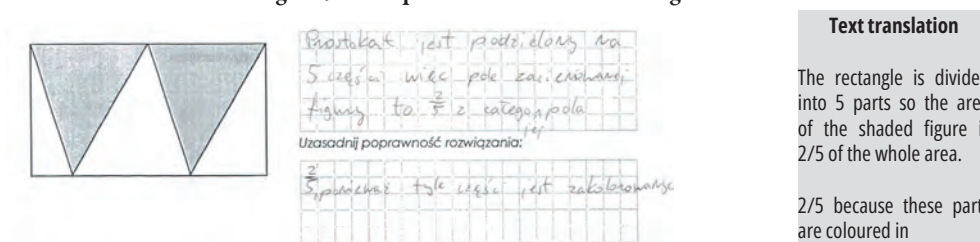 Prostokąt jest podzielony na
5 części więc pole zacieniowanej
figury to 2/5 z całego pola
jej
Uzasadnij poprawność rozwiązania:
2/5, ponieważ tyle części jest zakolorowanych
Text translation
The rectangle is divide
into 5 parts so the are
of the shaded figure i
2/5 of the whole area.
2/5 because these part
are coloured in